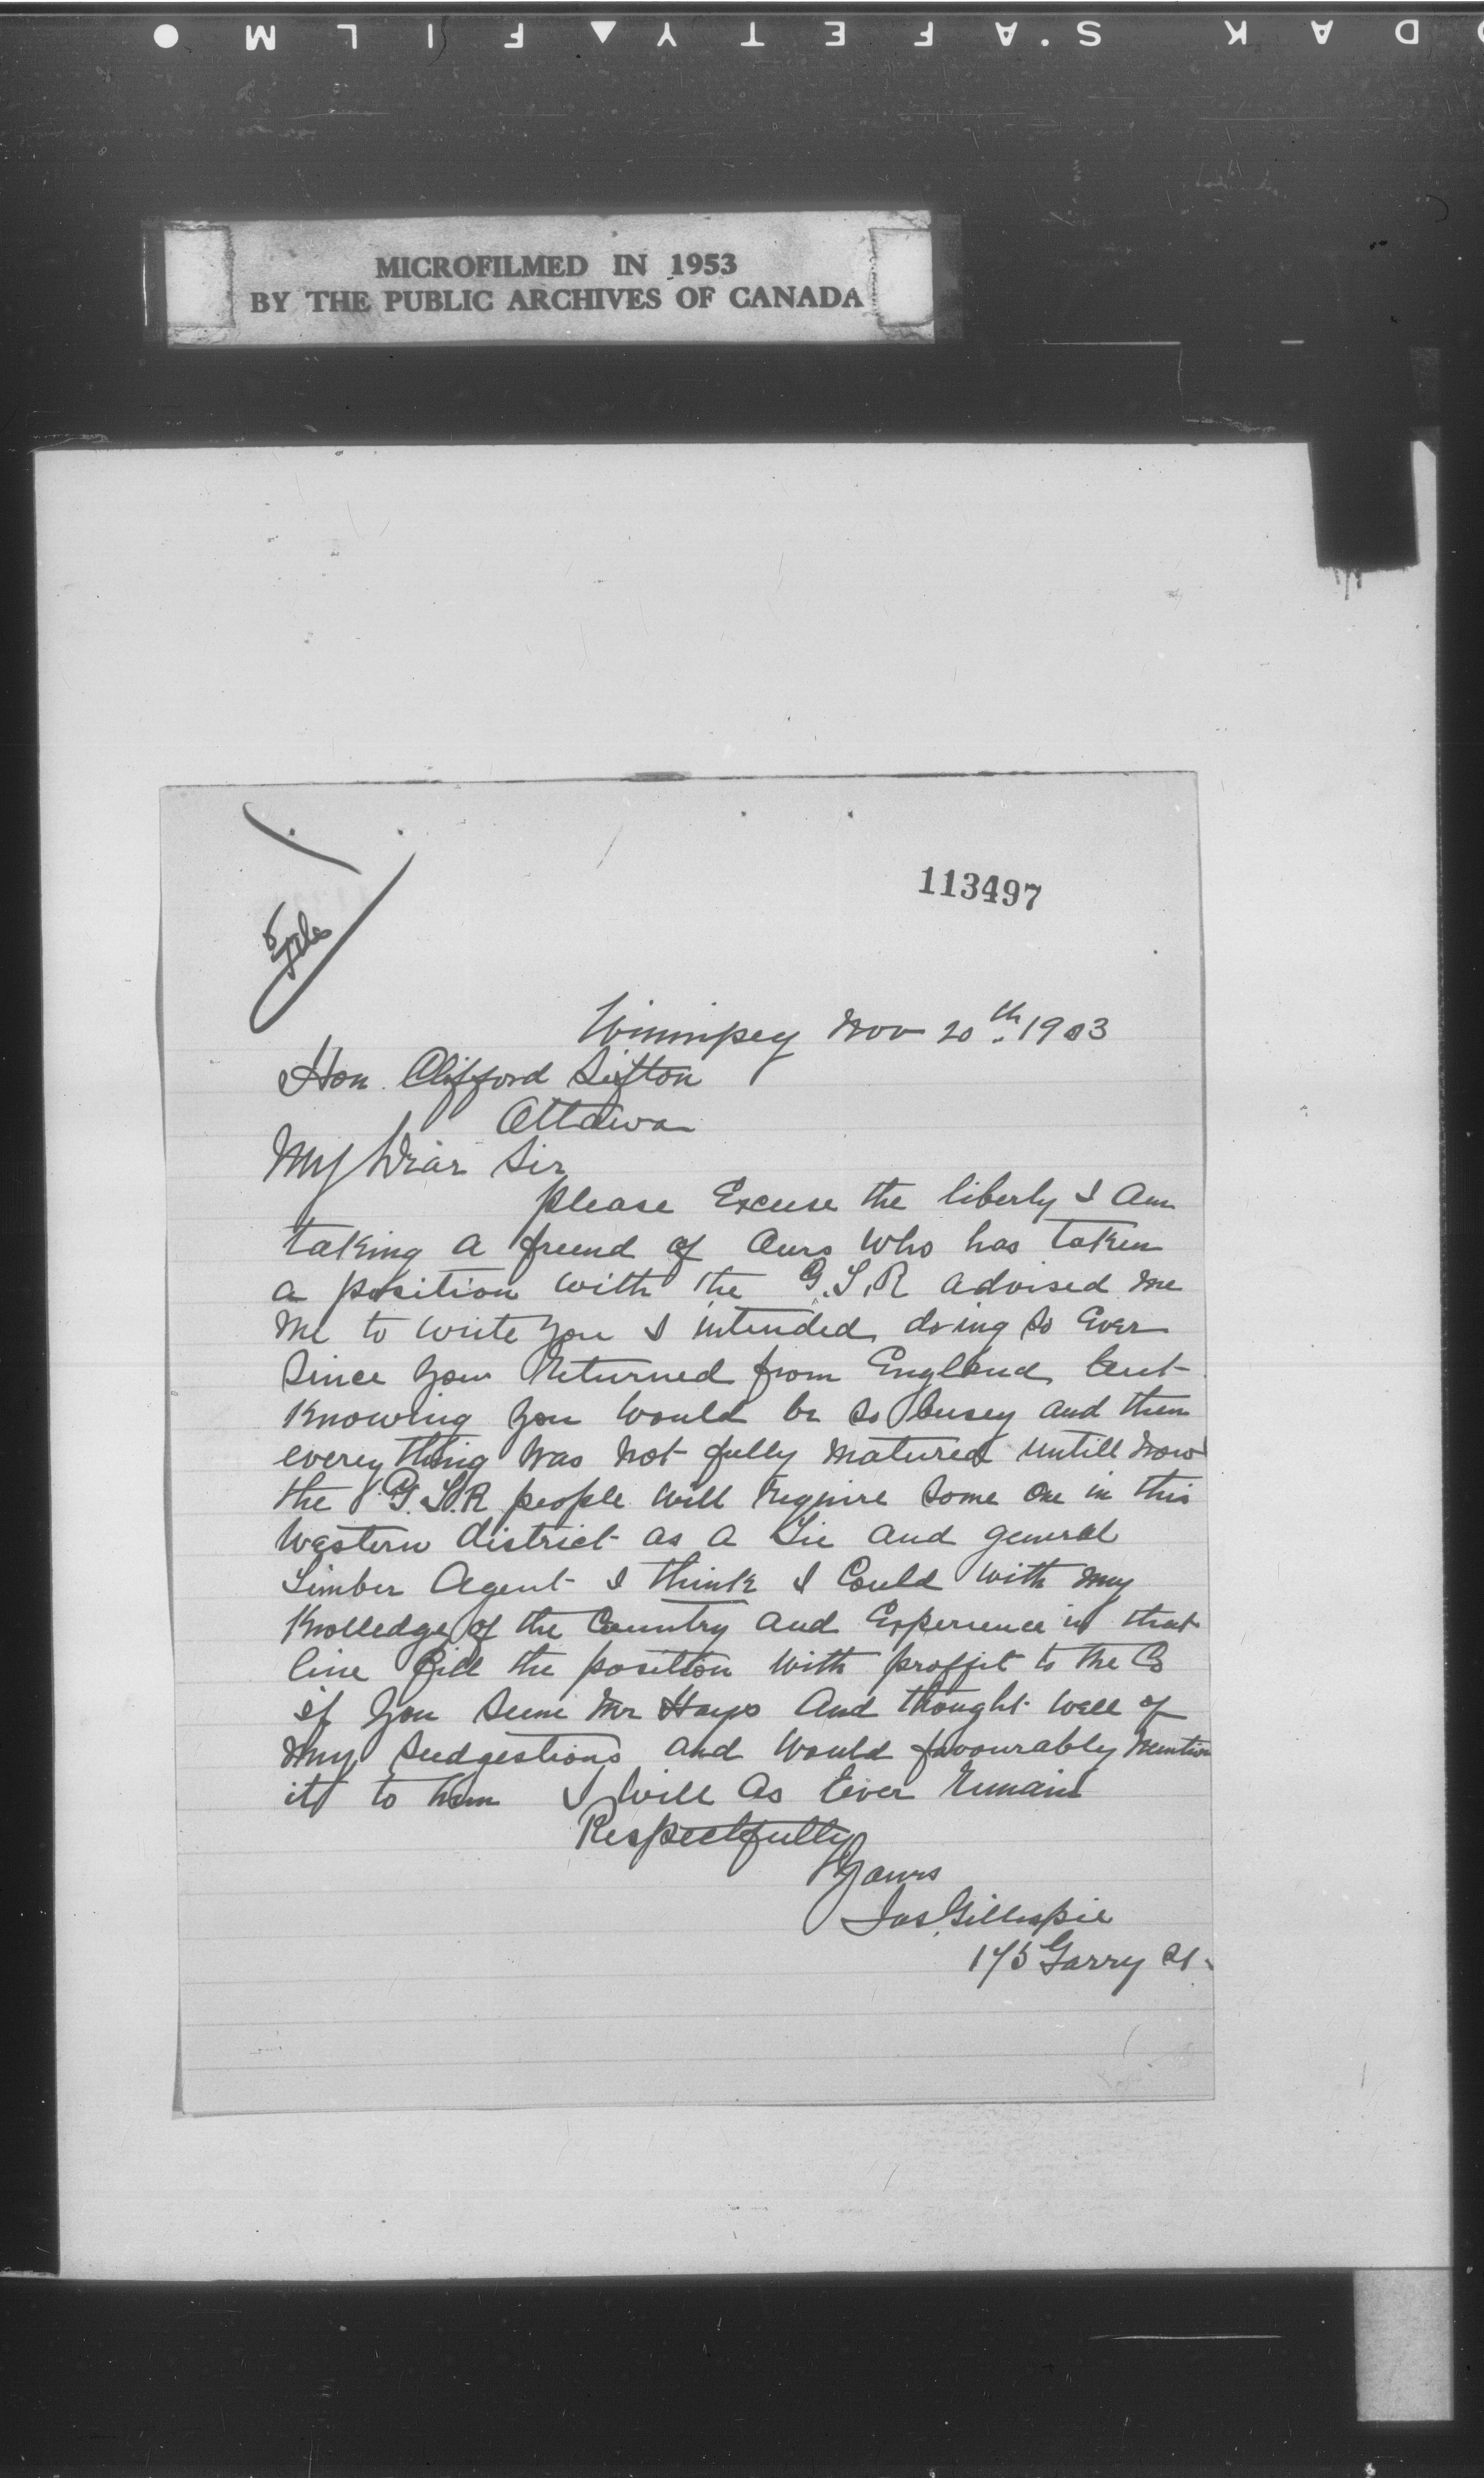 KODAK S.A.FETY ▲ FILM ●
MICROFILMED IN 1953
BY THE PUBLIC ARCHIVES OF CANADA
113497
Winnipeg Nov 20th. 1903
Hon. Clifford Sifton
Ottawa
My Dear Sir
please Excuse the liberty I am
taking a friend of Ours who has taken
a position with the G.T.R advised me
me to write you I intended doing so Ever
Since you returned from England but
Knowing you would be so busey and then
everything was not fully matured untill now
the G.T.R people will require some one in this
western district as a Tie and general
Timber Agent I think I Could with my
Knolledge of the Country and Experience in that
line fill the position with proffit to the Co
if you seene Mr Hays And thought well of
my sudgestions and would favourably mention
it to him I will As Ever remain
Respectfully
Yours
Jas. Gillespie
175 Garry St.